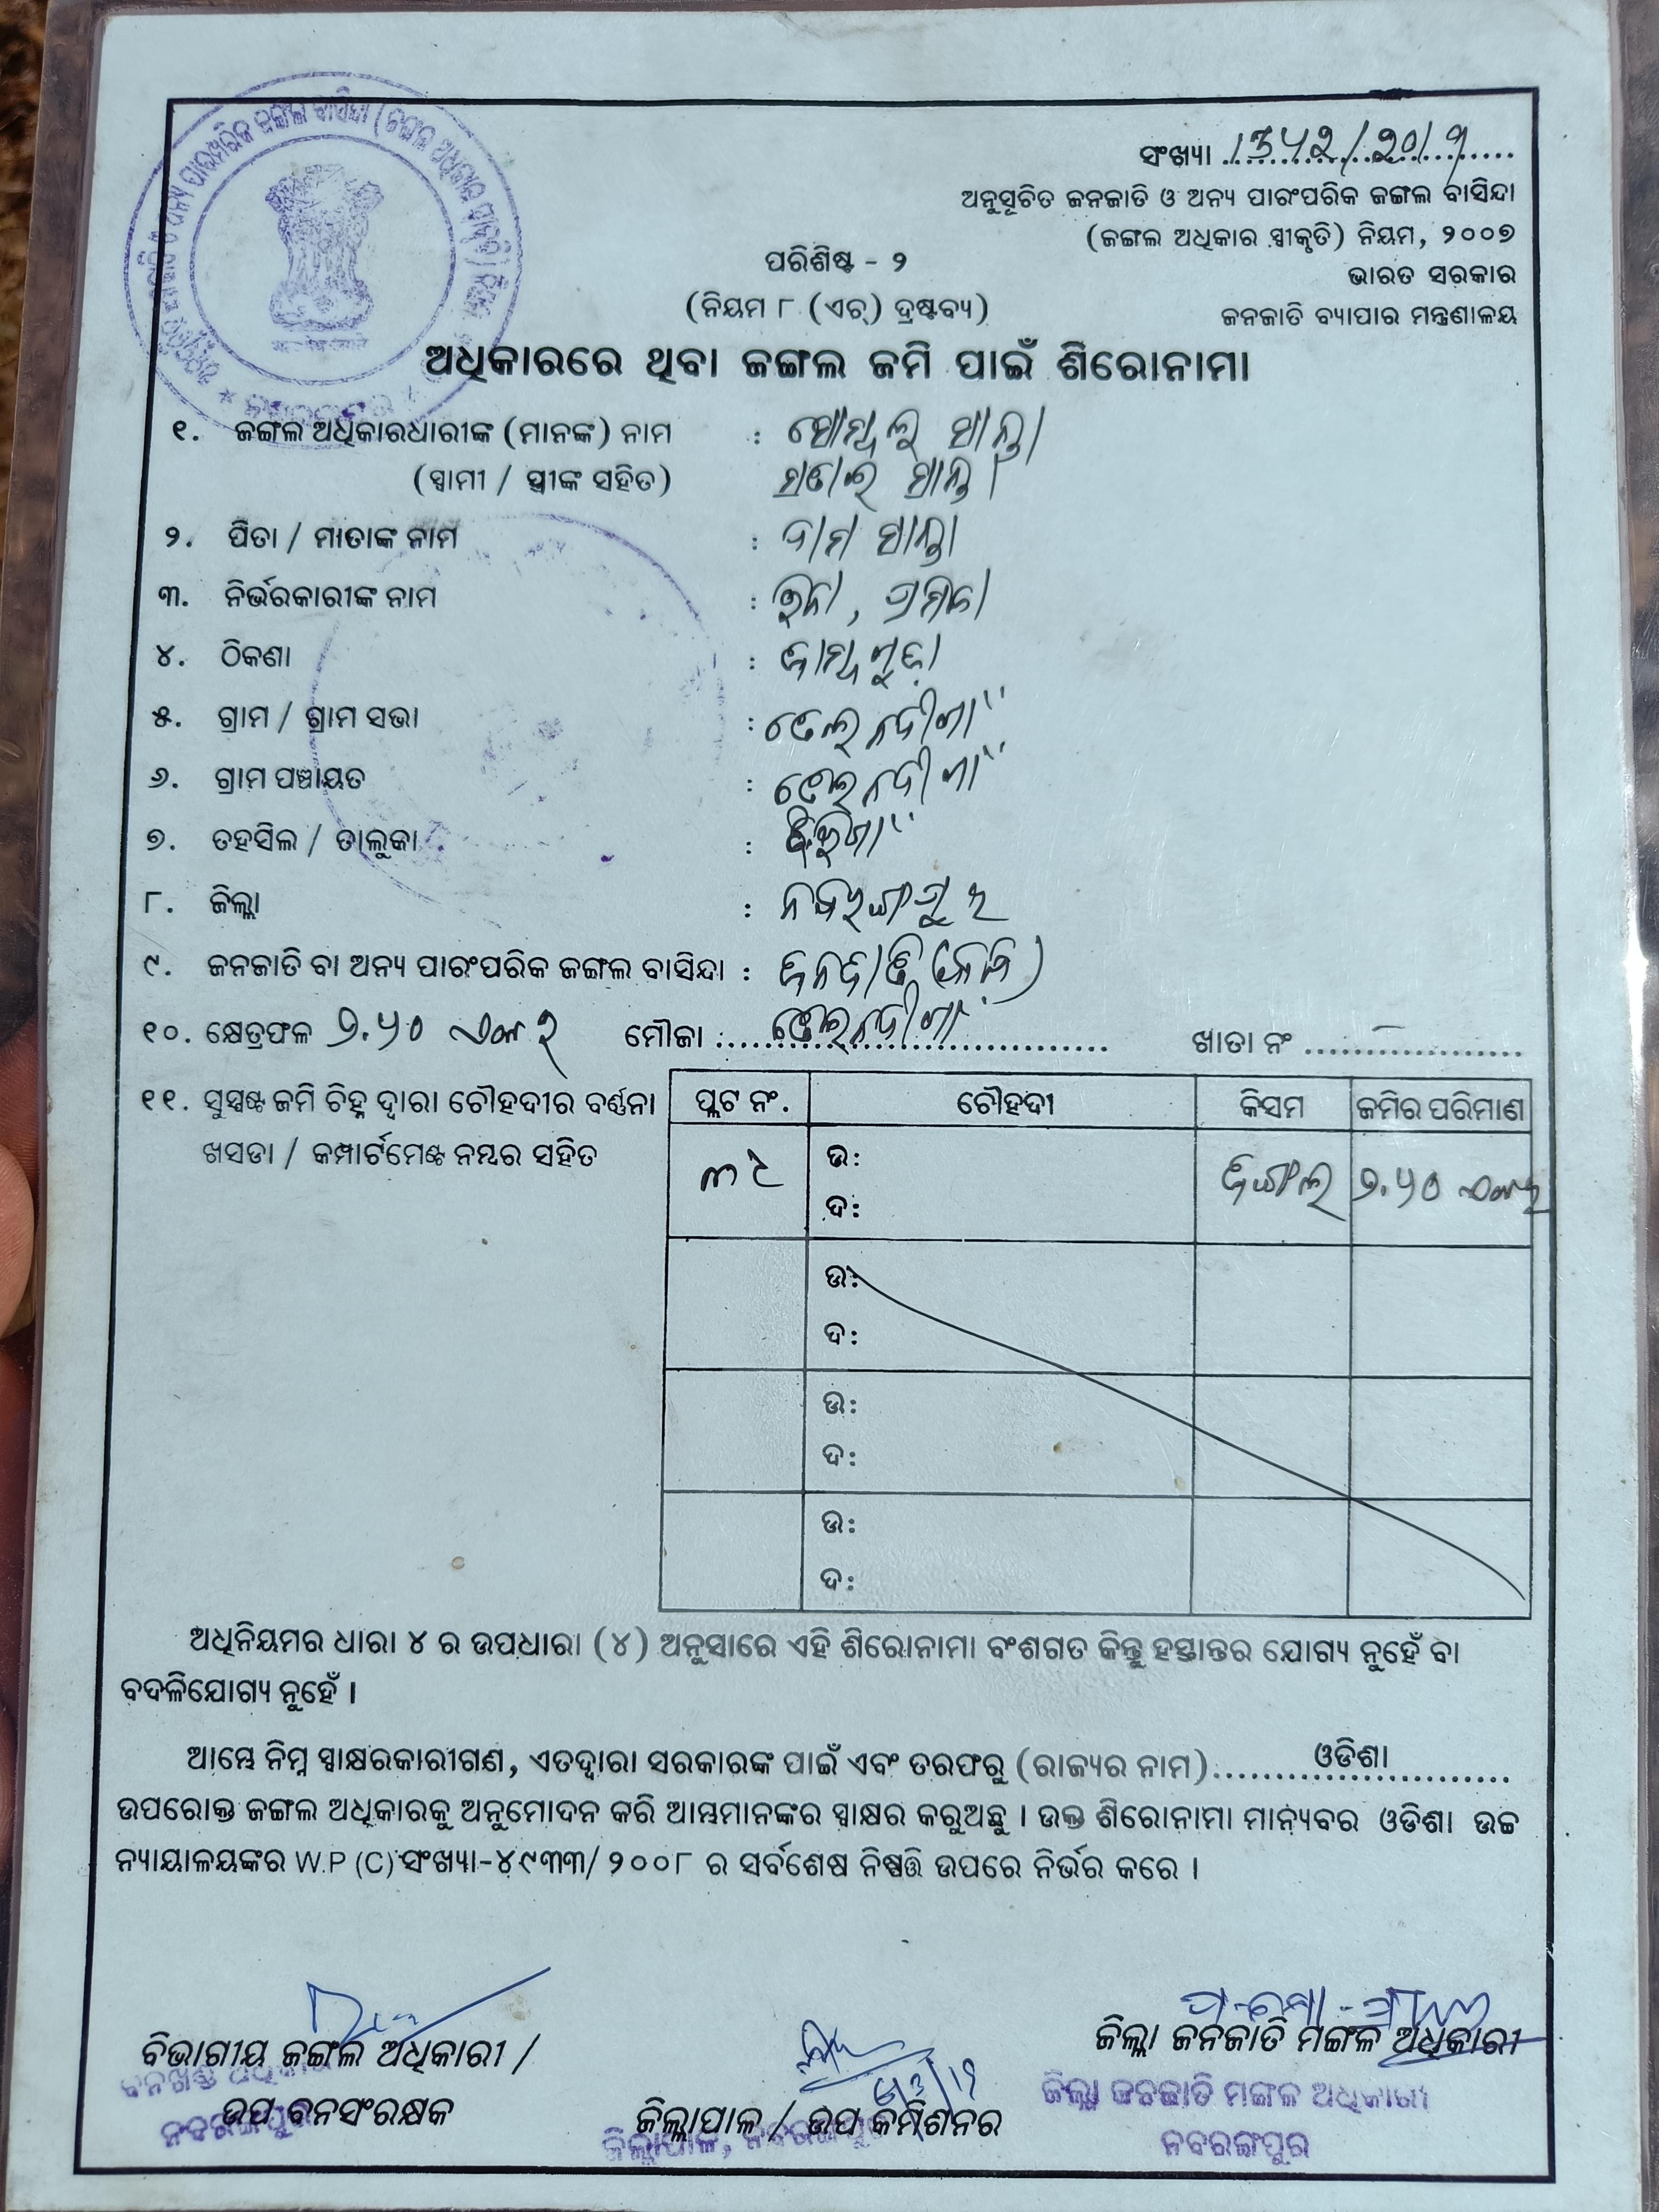 ସଂଖ୍ୟା
ଅନୁସୂଚିତ ଜନଜାତି ଓ ଅନ୍ୟ ପାରଂପରିକ ଜଙ୍ଗଲ ବାସିନ୍ଦା
(ଜଙ୍ଗଲ ଅଧିକାର ସ୍ୱୀକୃତି) ନିୟମ, ୨୦୦୭
ଭାରତ ସରକାର
ଜନଜାତି ବ୍ୟାପାର ମନ୍ତ୍ରଣାଳୟ
ପରିଶିଷ୍ଟ - ୨
(ନିୟମ ୮ (ଏଚ୍) ଦ୍ରଷ୍ଟବ୍ୟ)
ଅଧିକାରରେ ଥିବା ଜଙ୍ଗଲ ଜମି ପାଇଁ ଶିରୋନାମା
୧. ଜଙ୍ଗଲ ଅଧିକାରଧାରୀଙ୍କ (ମାନଙ୍କ) ନାମ :
(ସ୍ୱାମୀ / ସ୍ତ୍ରୀଙ୍କ ସହିତ)
୨. ପିତା / ମାତାଙ୍କ ନାମ :
୩. ନିର୍ଭରକାରୀଙ୍କ ନାମ :
୪. ଠିକଣା :
୫. ଗ୍ରାମ / ଗ୍ରାମ ସଭା :
୬. ଗ୍ରାମ ପଞ୍ଚାୟତ :
୭. ତହସିଲ / ତାଲୁକା :
୮. ଜିଲ୍ଲା : ନବରଙ୍ଗପୁର
୯. ଜନଜାତି ବା ଅନ୍ୟ ପାରଂପରିକ ଜଙ୍ଗଲ ବାସିନ୍ଦା : ଜନଜାତି
୧୦. କ୍ଷେତ୍ରଫଳ ୭.୫୦ ଏକର ମୌଜା : ଖାତା ନଂ
୧୧. ସୁସ୍ପଷ୍ଟ ଜମି ଚିହ୍ନ ଦ୍ୱାରା ଚୌହଦୀର ବର୍ଣ୍ଣନା
ଖସଡା / କମ୍ପାର୍ଟମେଣ୍ଟ ନମ୍ବର ସହିତ
ପ୍ଲଟ ନଂ. ଚୌହଦୀ କିସମ ଜମିର ପରିମାଣ
ଉ: ଜଙ୍ଗଲ ୭.୫୦ ଏକର
ଦ:
ଉ:
ଦ:
ଉ:
ଦ:
ଉ:
ଦ:
ଅଧିନିୟମର ଧାରା ୪ ର ଉପଧାରା (୪) ଅନୁସାରେ ଏହି ଶିରୋନାମା ବଂଶଗତ କିନ୍ତୁ ହସ୍ତାନ୍ତର ଯୋଗ୍ୟ ନୁହେଁ ବା
ବଦଳିଯୋଗ୍ୟ ନୁହେଁ ।
ଆମ୍ଭେ ନିମ୍ନ ସ୍ୱାକ୍ଷରକାରୀଗଣ, ଏତଦ୍ୱାରା ସରକାରଙ୍କ ପାଇଁ ଏବଂ ତରଫରୁ (ରାଜ୍ୟର ନାମ) ଓଡିଶା
ଉପରୋକ୍ତ ଜଙ୍ଗଲ ଅଧିକାରକୁ ଅନୁମୋଦନ କରି ଆମ୍ଭମାନଙ୍କର ସ୍ୱାକ୍ଷର କରୁଅଛୁ । ଉକ୍ତ ଶିରୋନାମା ମାନ୍ୟବର ଓଡିଶା ଉଚ୍ଚ
ନ୍ୟାୟାଳୟଙ୍କର W.P (C) ସଂଖ୍ୟା-୪୯୩୩/୨୦୦୮ ର ସର୍ବଶେଷ ନିଷ୍ପତ୍ତି ଉପରେ ନିର୍ଭର କରେ ।
ବିଭାଗୀୟ ଜଙ୍ଗଲ ଅଧିକାରୀ /
ଉପ ବନସଂରକ୍ଷକ
ଜିଲ୍ଲାପାଳ / ଉପ କମିଶନର
ଜିଲ୍ଲାପାଳ, ନବରଙ୍ଗପୁର
ଜିଲ୍ଲା ଜନଜାତି ମଙ୍ଗଳ ଅଧିକାରୀ
ଜିଲ୍ଲା ଜନଜାତି ମଙ୍ଗଳ ଅଧିକାରୀ
ନବରଙ୍ଗପୁର